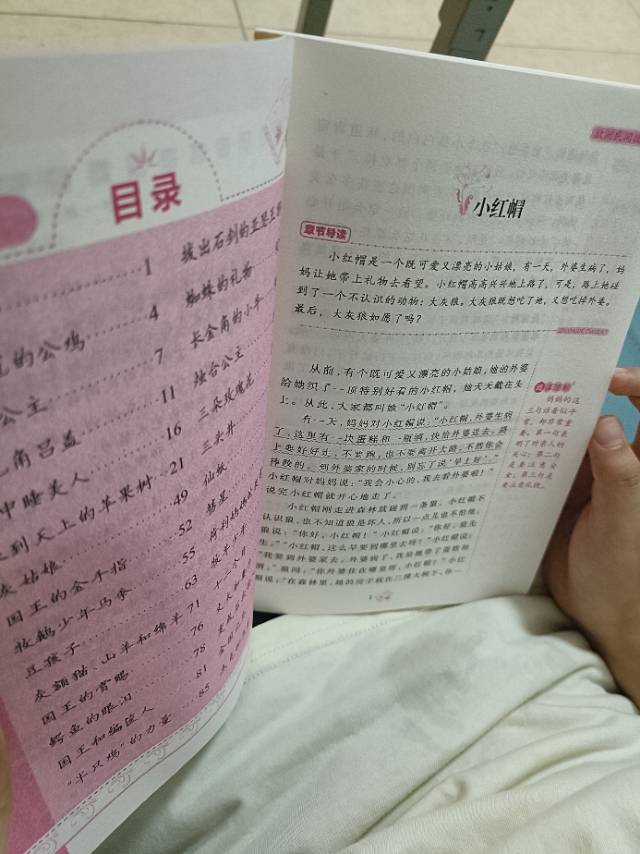 目录
1
的公鸡
4
公主
7
11
中睡美人
16
到天上的苹果树
21
灰姑娘
49
国王的金手指
52
牧鹅少年马季
55
豆孩子
63
灰额猫、山羊和绵羊
71
国王的膏
76
鳄鱼的眼泪
78
国王和
81
“半只鸡”的力量
85
拔出石剑的亚瑟王
蜘蛛的礼物
长金角的小牛
烛台公主
三朵玫瑰花
十二个月
小红帽
章节导读
小红帽是一个既可爱又漂亮的小姑娘，有一天，外婆生病了，妈
妈让她带上礼物去看望。小红帽高高兴兴地上路了，可是，路上她碰
到了一个不认识的动物：大灰狼。大灰狼既想吃了她，又想吃掉外婆。
最后，大灰狼如愿了吗？
从前，有个既可爱又漂亮的小姑娘，她的外婆
给她织了一顶特别好看的小红帽，她天天戴在头
上。从此，大家都叫她“小红帽”。
有一天，妈妈对小红帽说：“小红帽，外婆生病
了，这里有一块蛋糕和一瓶酒，快给外婆送去。路
上要好好走，不要跑，也不要离开大路，不然你会
摔跤的。到外婆家的时候，别忘了说‘早上好’。”
小红帽对妈妈说：“我会小心的，我去看外婆啦！”
说完小红帽就开心地走了。
小红帽刚走进森林就碰到一条狼。小红帽不
认识狼，也不知道狼是坏人，所以一点儿也不怕他。
狼说：“你好，小红帽！”小红帽说：“你好，狼先
生。”“小红帽，这么早要到哪里去呀？”小红帽说：
“我要到外婆家去，外婆病了，我给她带了蛋糕和
酒。”狼问：“你外婆住在哪里呀，小红帽？”小红
帽说：“在森林里，她的房子就在三棵大树下，
妈妈的这
1